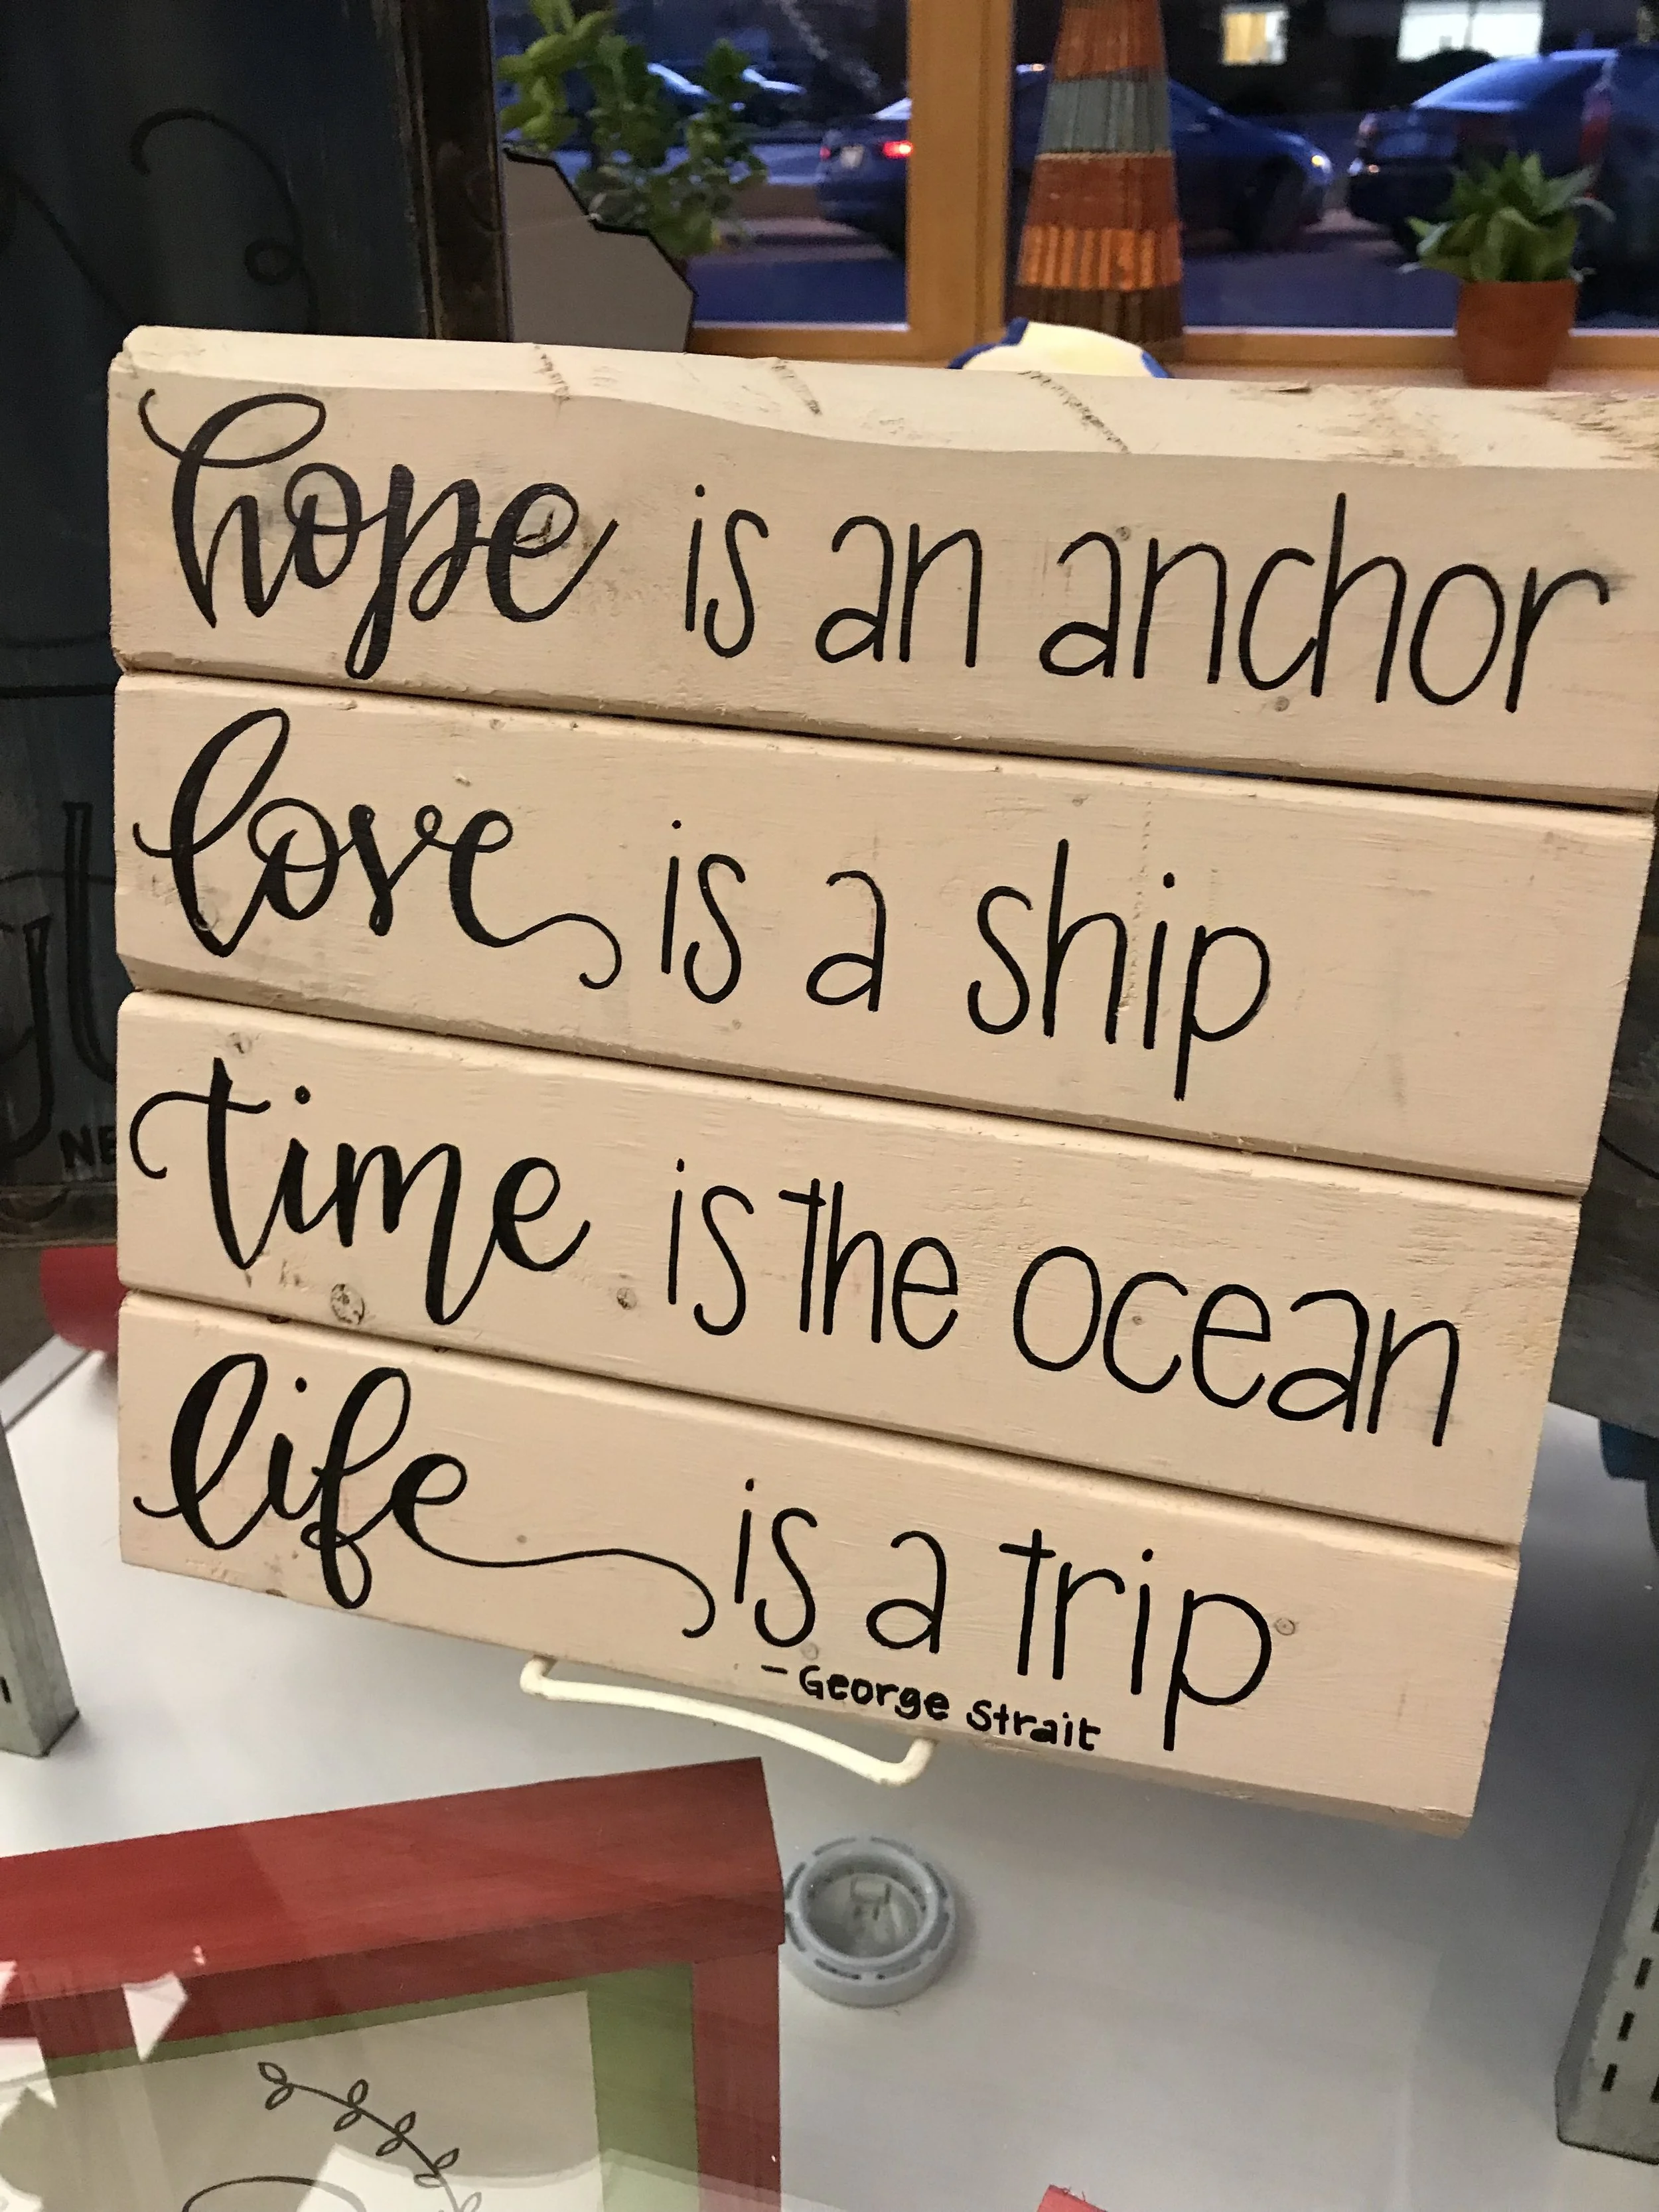 hope is an anchor
love is a ship
time is the ocean
life is a trip
- George Strait